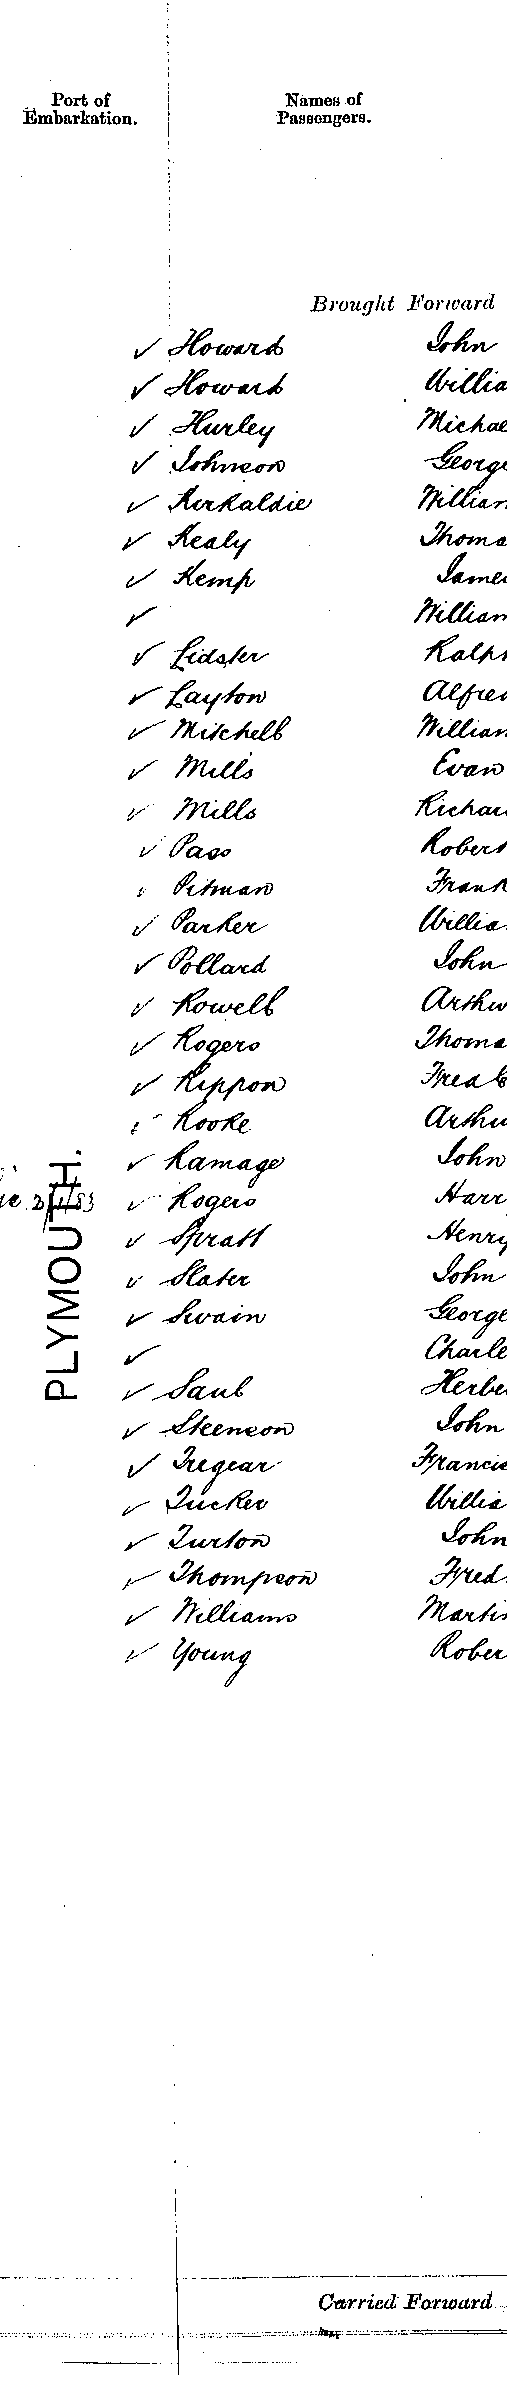 Port of Embarkation. Names of Passengers.
Brought Forward
✓ Howard John
✓ Howard Willia
✓ Hurley Michae
✓ Johnson George
✓ Kirkaldie William
✓ Kealy Thoma
✓ Kemp Jame
✓ William
✓ Lidster Ralph
✓ Layton Alfred
✓ Mitchell William
✓ Mills Evan
✓ Mills Richar
✓ Pass Robert
✓ Pitman Frank
✓ Parker Willia
✓ Pollard John
✓ Rowell Arthu
✓ Rogers Thoma
✓ Rippon Fredk
✓ Rooke Arthu
✓ Ramage John
✓ Rogers Harr
✓ Spratt Henry
✓ Slater John
✓ Swain George
✓ Charle
✓ Saul Herbe
✓ Steenson John
✓ Tregear Francis
✓ Tucker Willia
✓ Turton John
✓ Thompson Fred
✓ Williams Martin
✓ Young Rober
PLYMOUTH.
Carried Forward